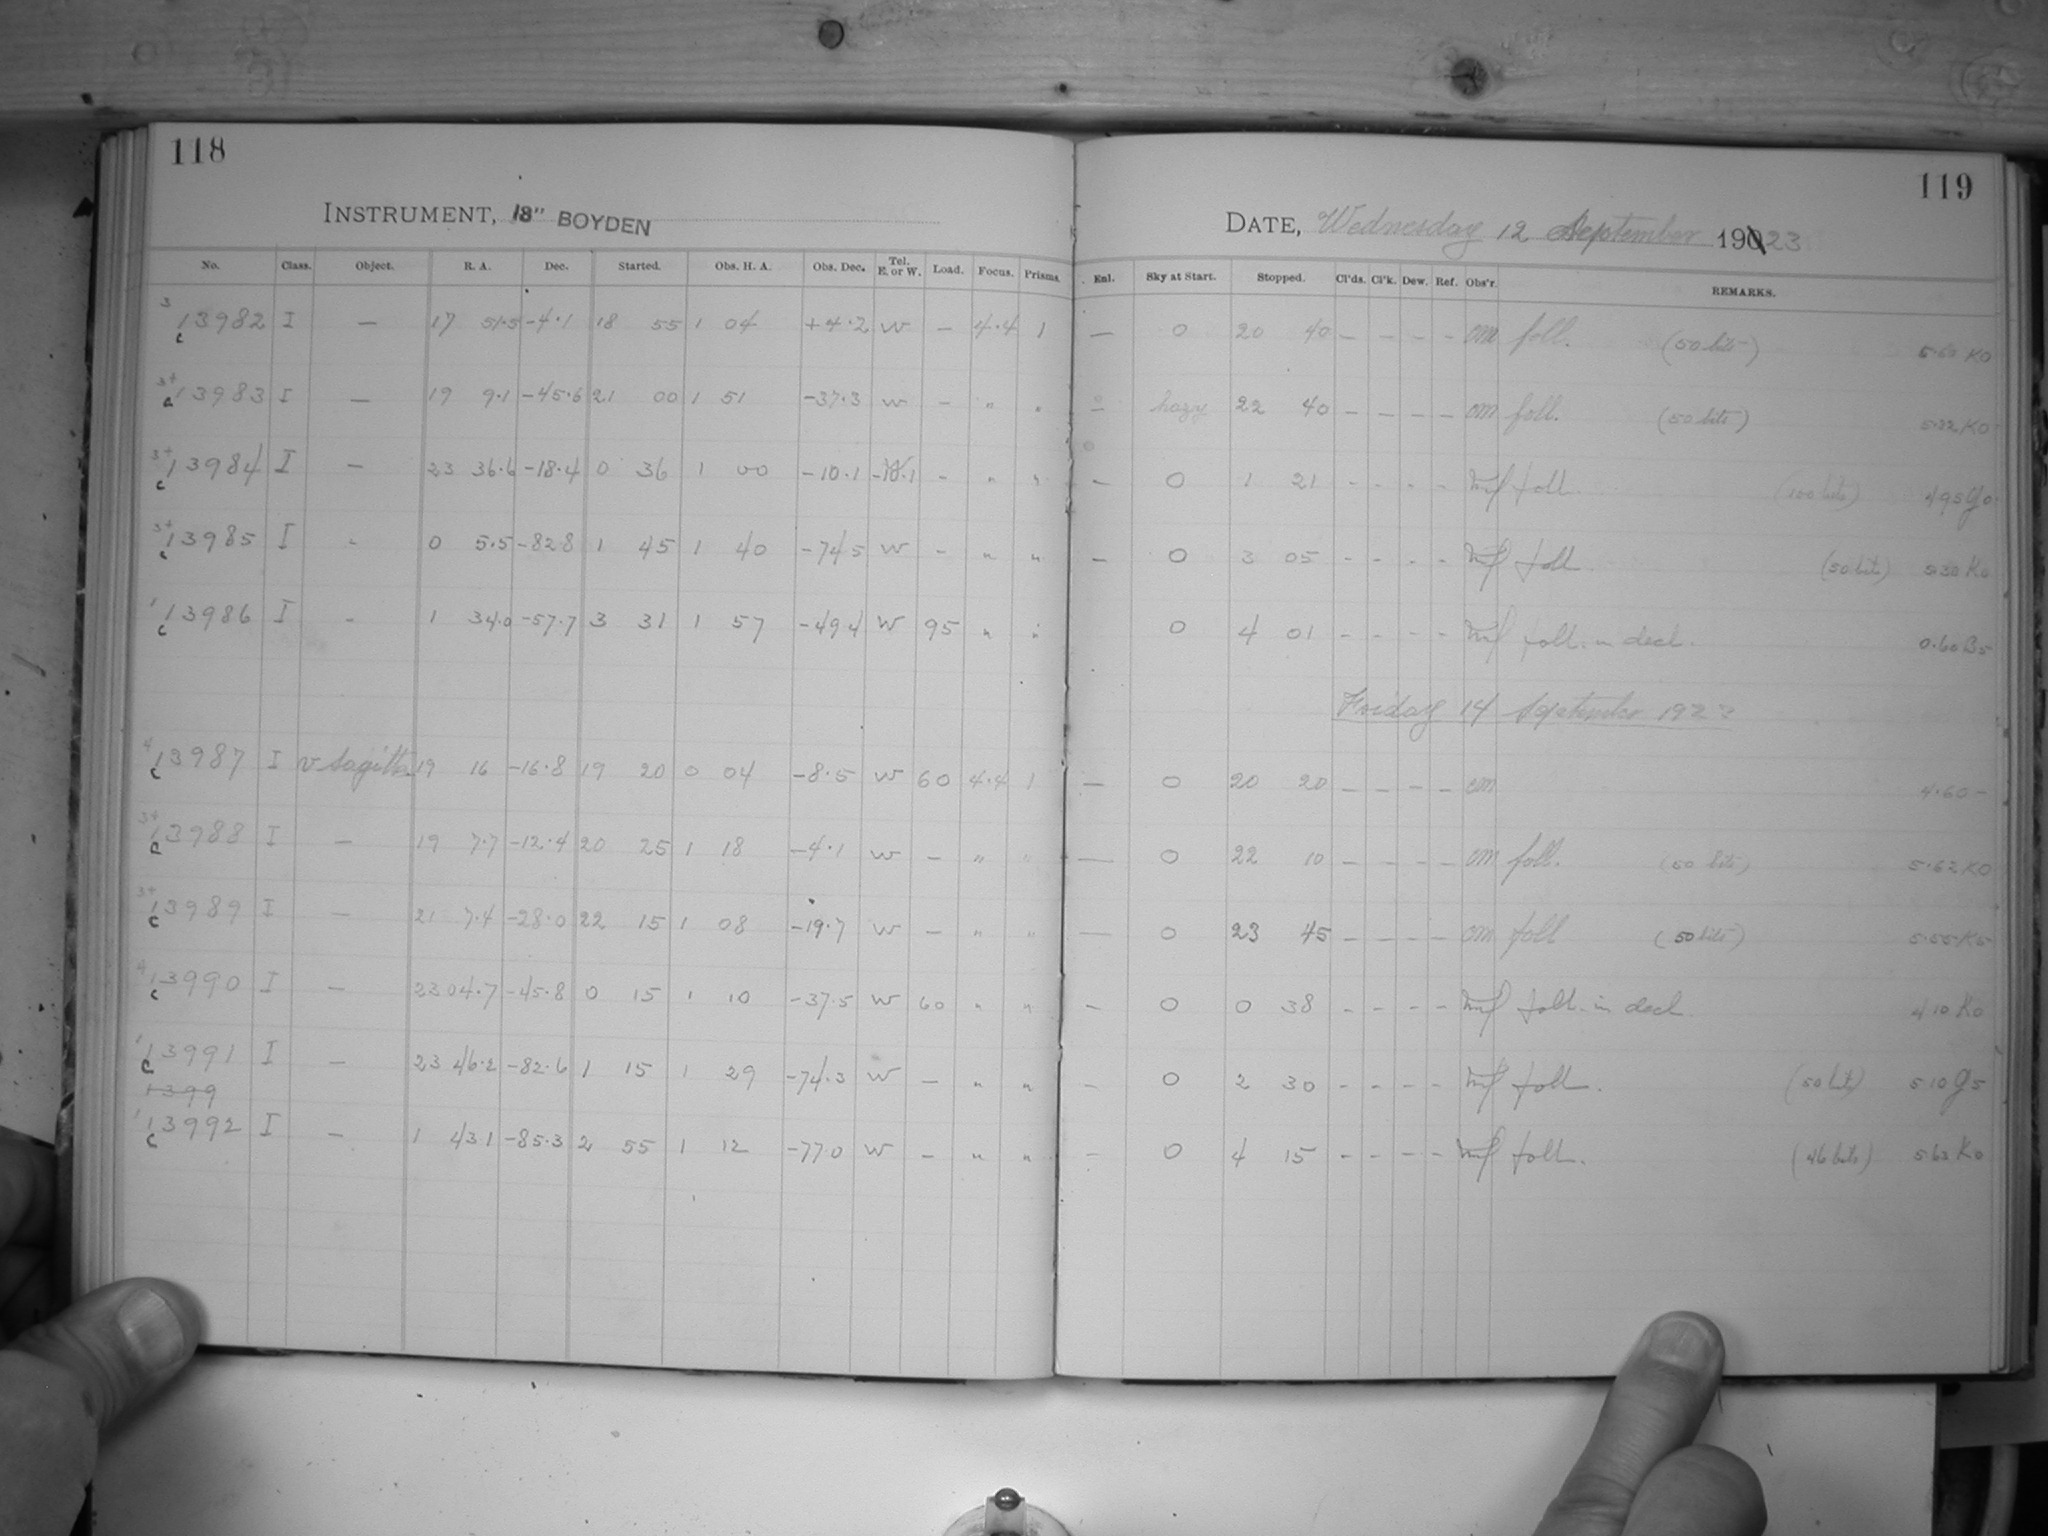 118
INSTRUMENT, 18" BOYDEN
No. Class. Object. R. A. Dec. Started. Obs. H. A. Obs. Dec. Tel. E. or W. Load. Focus. Prisms.
3 13982 I — 17 51.5 -4.1 18 55 1 04 +4.2 W — 4.4 1
c
3+ 13983 I — 19 9.1 -45.6 21 00 1 51 -37.3 W — " "
c
3+ 13984 I — 23 36.6 -18.4 0 36 1 00 -10.1 -18.1 - " "
c
3+ 13985 I - 0 5.5 -82.8 1 45 1 40 -74.5 W - " "
c
1 13986 I - 1 34.0 -57.7 3 31 1 57 -49.4 W 95 " "
c
4 13987 I v Sagitta 19 16 -16.8 19 20 0 04 -8.5 W 60 4.4 1
c
3+ 13988 I — 19 7.7 -12.4 20 25 1 18 -4.1 W — " "
c
3+ 13989 I — 21 7.4 -28.0 22 15 1 08 -19.7 W — " "
c
4 13990 I — 23 04.7 -45.8 0 15 1 10 -37.5 W 60 " "
c
1 13991 I — 23 46.2 -82.6 1 15 1 29 -74.3 W — " "
c
1399
1 13992 I — 1 43.1 -85.3 2 55 1 12 -77.0 W — " "
c
119
DATE, Wednesday 12 September 19023
Enl. Sky at Start. Stopped. Cl'ds. Cl'k. Dew. Ref. Obs'r. REMARKS.
— 0 20 40 — — — — om foll. (50 bits) 5.60 K0
— hazy 22 40 — — — — om foll. (50 bits) 5.32 K0
— 0 1 21 - - - - foll. (100 bits) 4.95 G0
— 0 3 05 - - - - foll. (50 bits) 5.30 K0
0 4 01 - - - - foll. in decl. 0.60 B5
Friday 14 September 1923
— 0 20 20 — — — — om 4.60 —
— 0 22 10 — — — — om foll. (50 bits) 5.62 K0
— 0 23 45 — — — — om foll (50 bits) 5.55 K5
— 0 0 38 - - - - foll. in decl. 4.10 K0
— 0 2 30 - - - - foll. (50 bits) 5.10 G5
— 0 4 15 - - - - foll. (46 bits) 5.63 K0